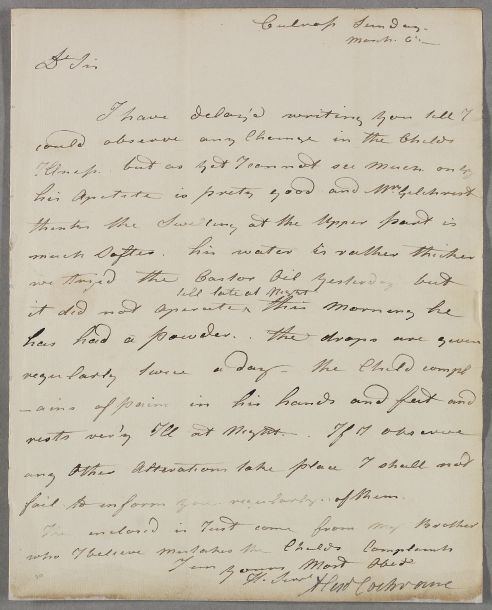 Culross Sunday
March 6th
Dr Sir
I have delay'd writing you till I
could observe any Change in the Childs
Illness. but as yet I cannot see much only
his Apetite is prety good and Mr Gilchrist
thinks the Swelling at the Upper part is
much Softer. his water is rather thicker
we tryed the Castor Oil yesterday but
till late at Night
it did not operate ^ this Morning he
has had a powder. the drops are given
regularly twice a day – the Child compl
-ains of pain in his hands and feet and
rests very Ill at Night. If I observe
any Other Alterations take place I shall not
fail to inform you regularly of them.
The enclosed is Just come from My Brother
who I believe mistakes the Childs Complaints
I am
yours Most Obed
H. Servt
Alexr Cochrane